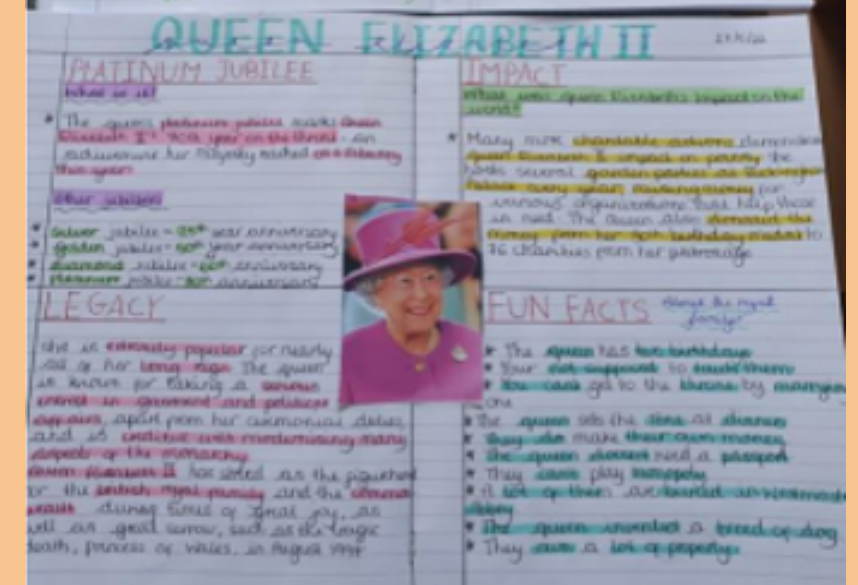 QUEEN ELIZABETH II
PLATINUM JUBILEE
What is it?
The queen's platinum jubilee marks Queen
Elizabeth II's 70th year on the throne - an
her majesty reached on 6 february
this year
other jubilees
Silver jubilee - 25th year anniversary
golden jubilee - 50th year anniversary
diamond jubilee - 60th anniversary
platinum jubilee - 70th anniversary
IMPACT
What was queen Elizabeth's impact on the
world?
Many more charitable actions
queen Elizabeth II impact in poverty. She
hosts several garden parties at Buckingham
Palace every year, raising money for
various organisations that help those
in need. The Queen also donated the
money from her 90th birthday to
charities from her patronage
LEGACY
She is extremely popular for nearly
all of her long reign. The queen
is known for taking a serious
interest in goverment and political
affairs, apart from her ceremonial duties,
and is credited with modernising many
aspects of the monarchy
Queen Elizabeth II has acted as the figurehead
for the british royal family and the common
wealth during times of great joy, as
well as great sorrow, such as the tragic
death, princess of Wales, in August 1997
FUN FACTS About the royal
family!
The queen has two birthdays
Your not supposed to touch them
You cant get to the throne by marrying
one
The queen sets the time at dinners
They do make their own money
The queen doesnt need a passport
They cant play monopoly
A lot of them are buried in Westminster
Abbey
The queen invented a breed of dog
They own a lot of property.